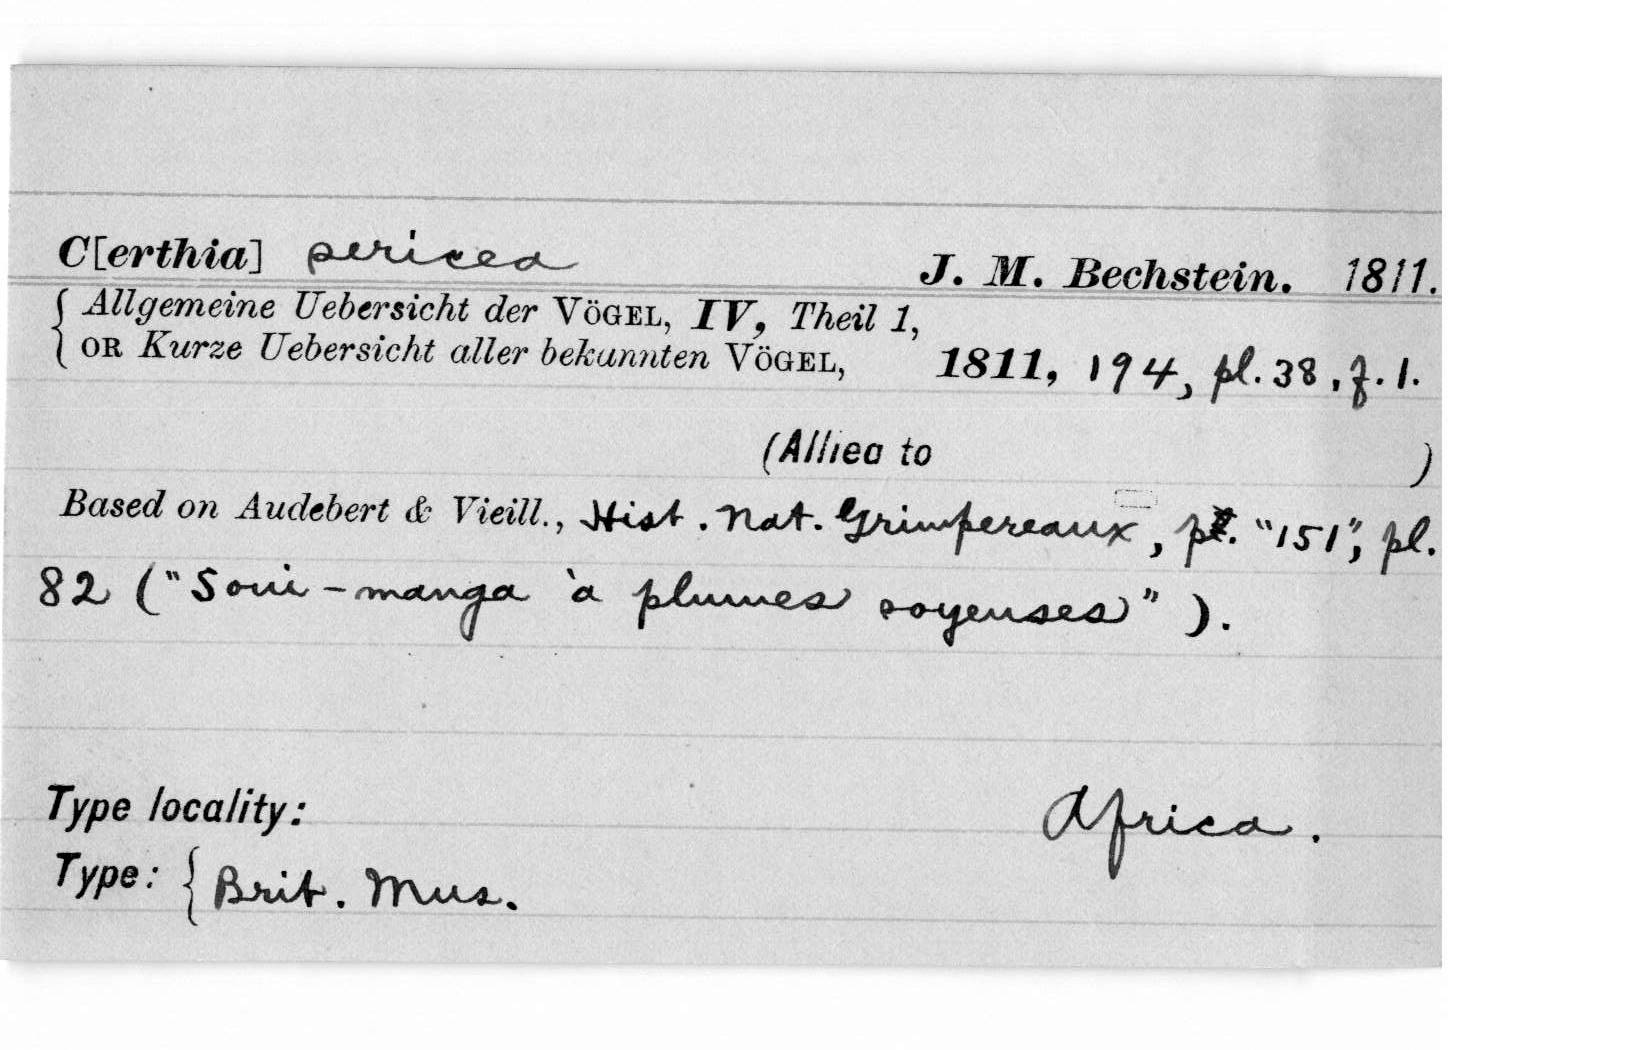 C[erthia] sericea J. M. Bechstein. 1811.
Allgemeine Uebersicht der VÖGEL, IV, Theil 1,
OR Kurze Uebersicht aller bekannten VÖGEL, 1811, 194, pl. 38, f. 1.
(Allied to )
Based on Audebert & Vieill., Hist. Nat. Grimpereaux, p. "151", pl.
82 ("Soui-manga à plumes soyeuses").
Type locality: Africa.
Type: { Brit. Mus.